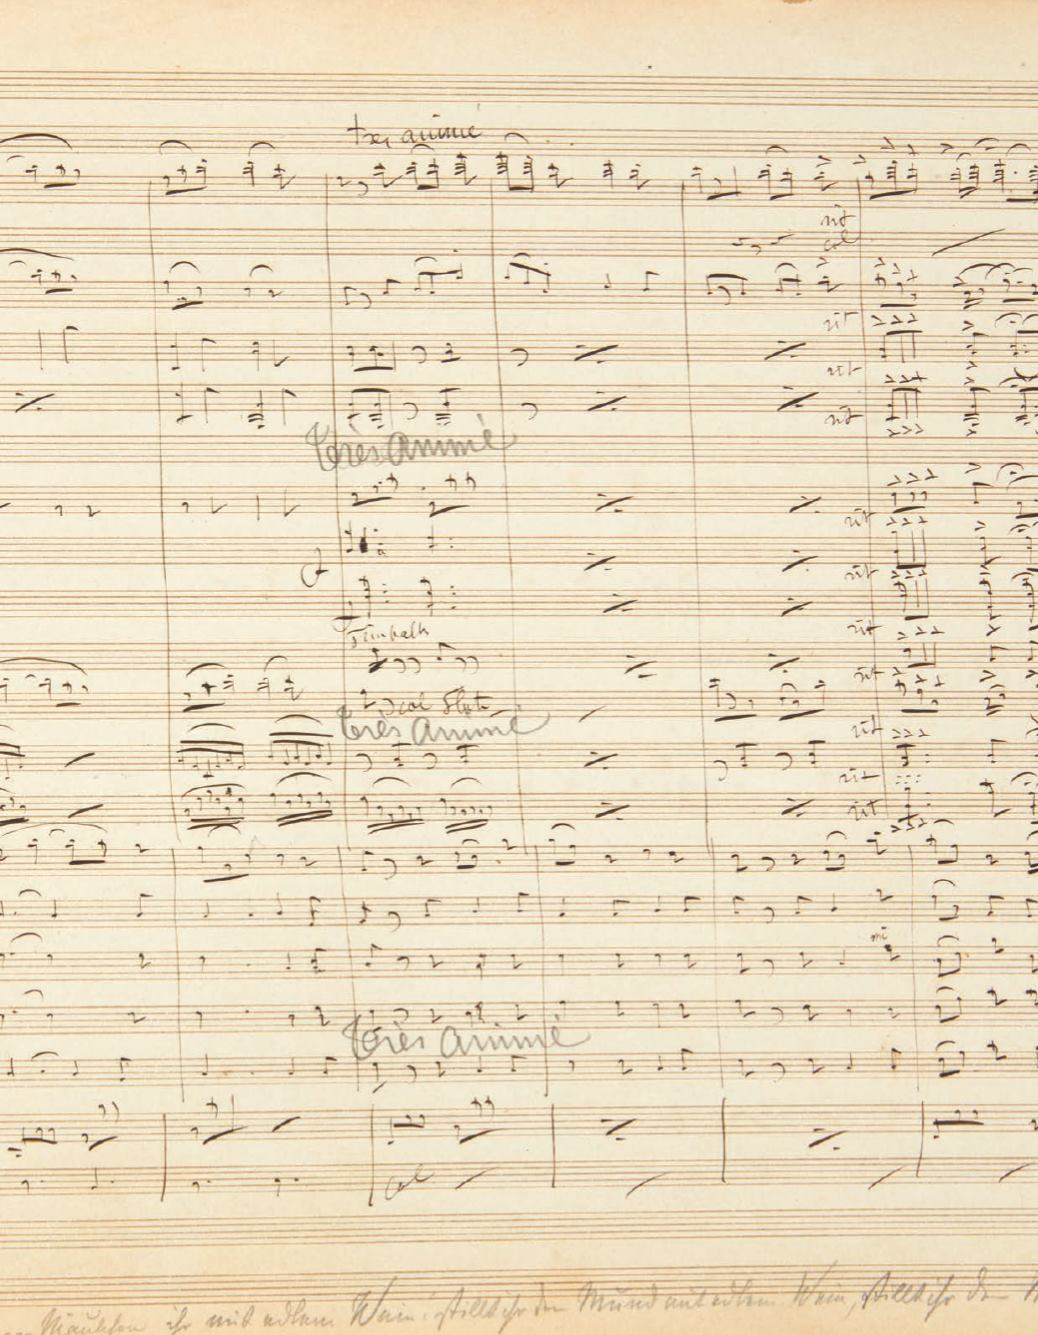 tres animé
rit
col
rit
rit
rit
Très Animé
rit
rit
rit
rit
col
Très Animé
rit
rit
rit
mi
Très Animé
col
ihr mit edlem Wein, stillt ihr den Mund mit edlem Wein, stillt ihr den